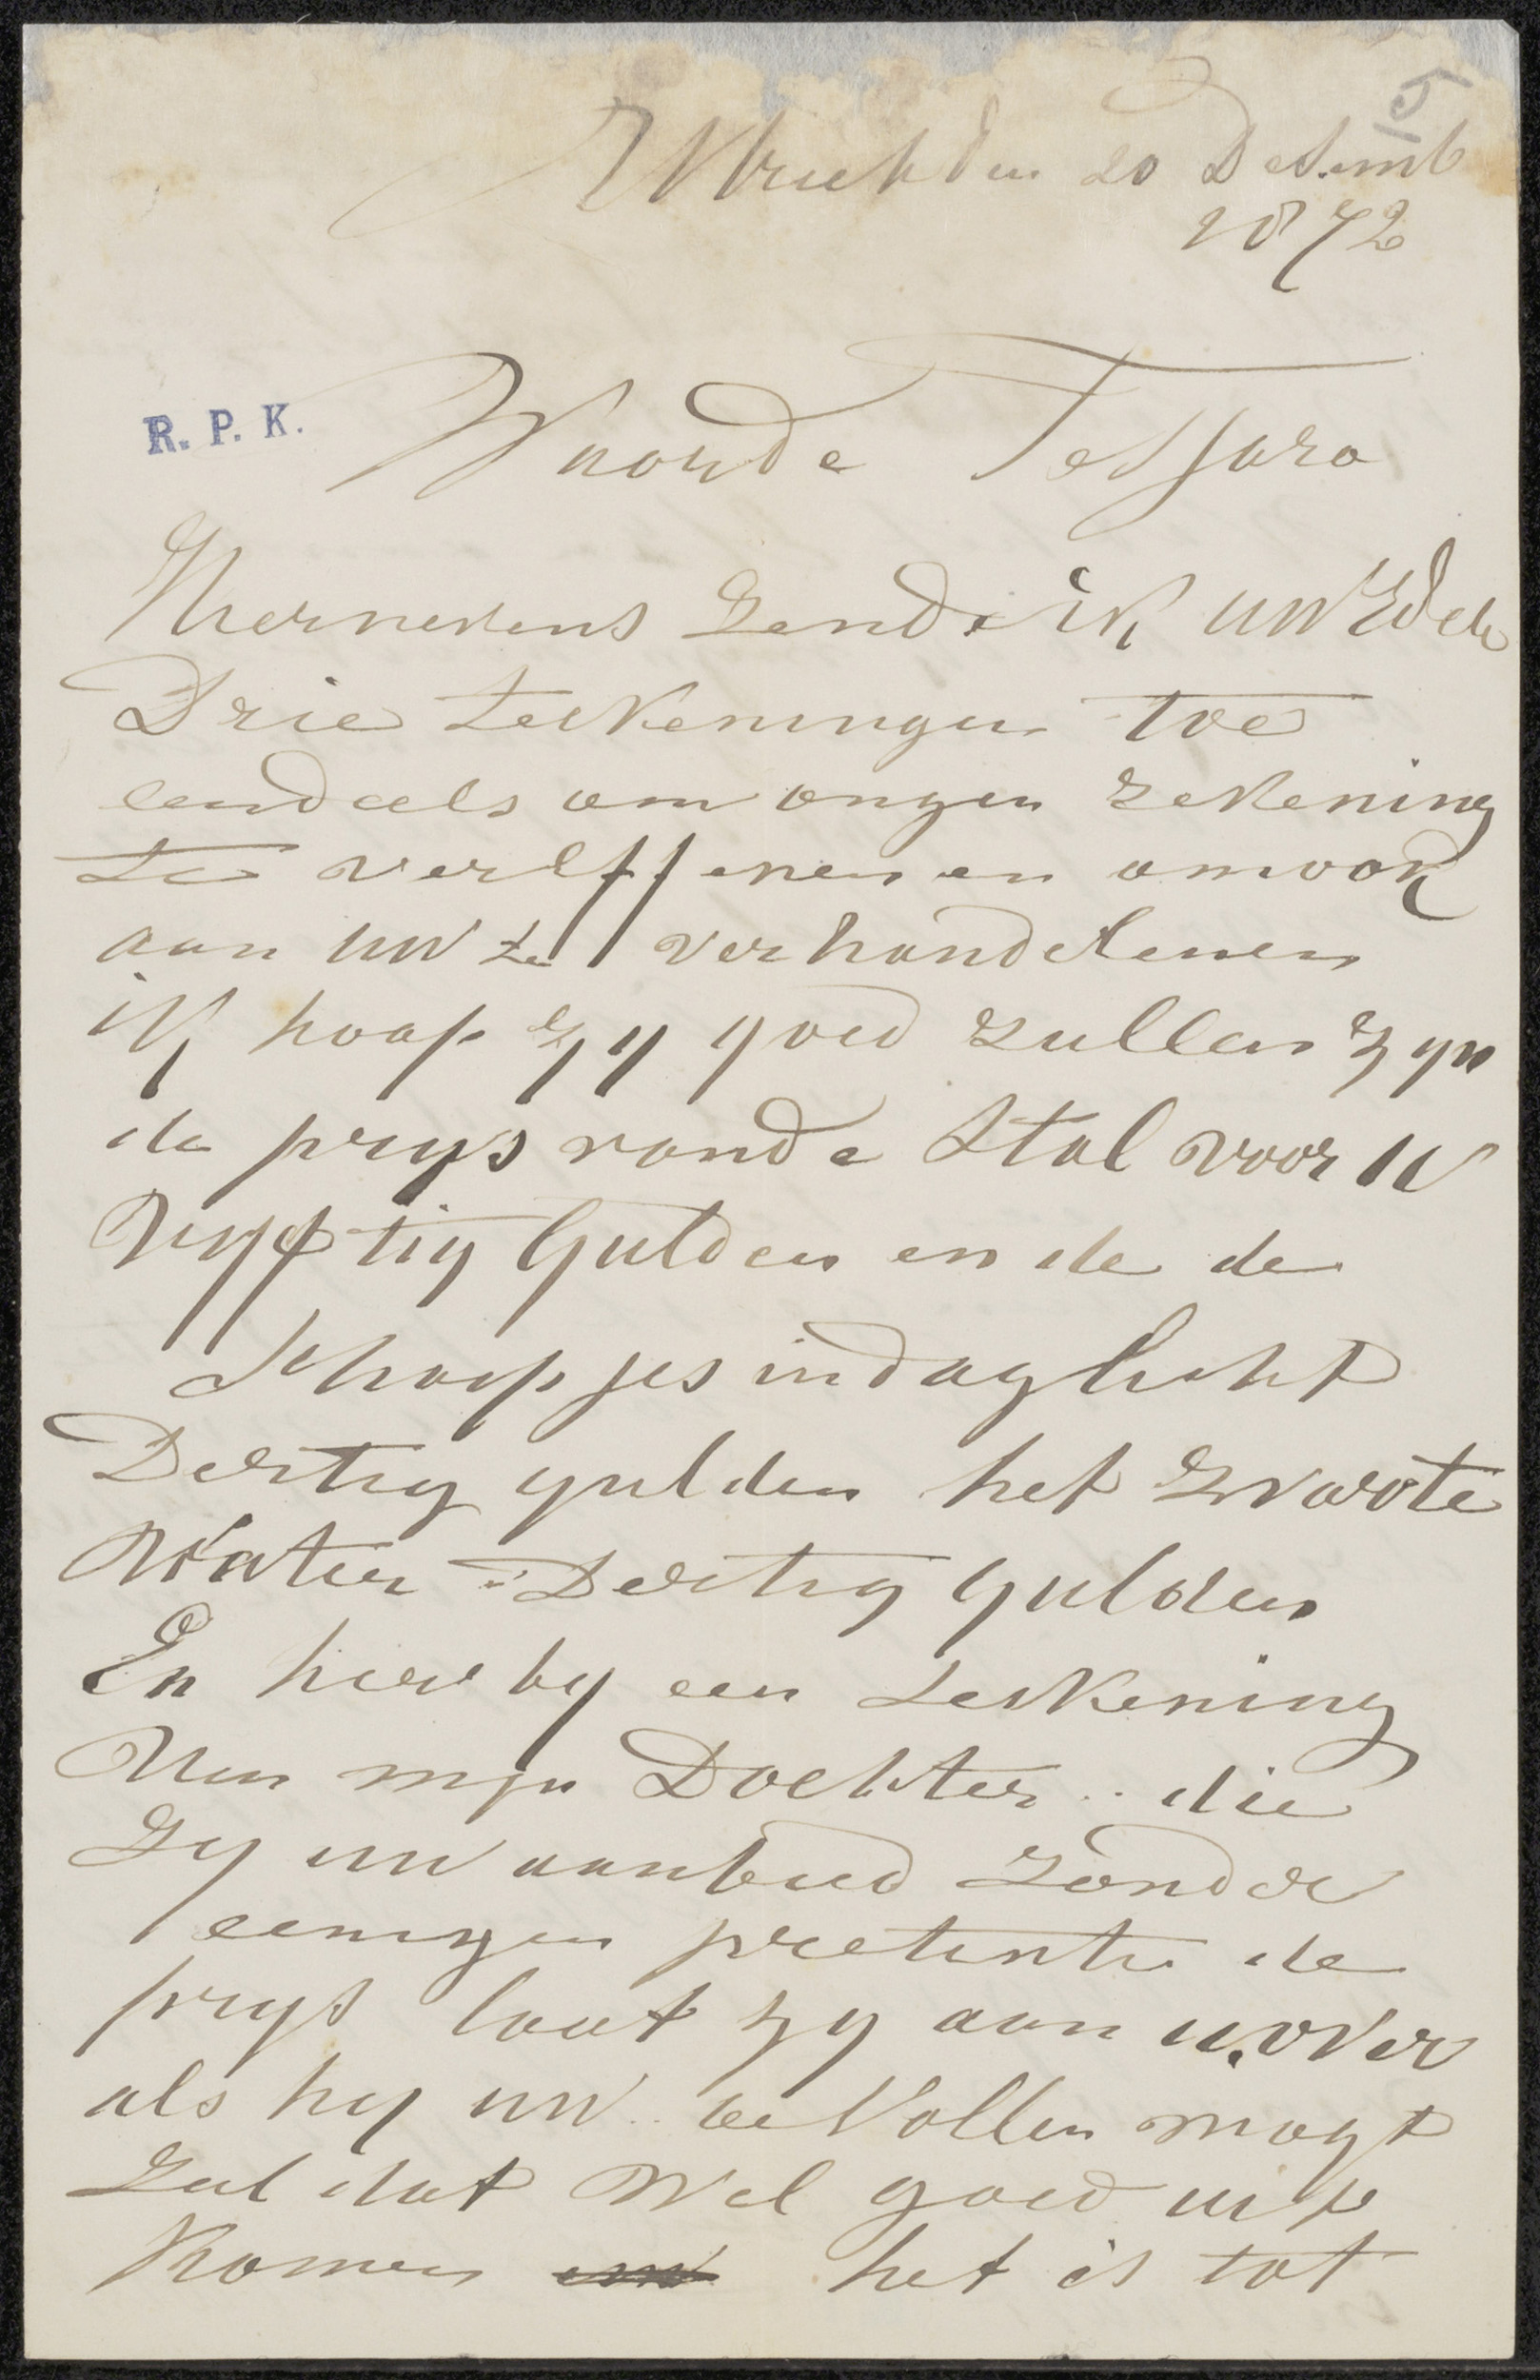 Utrecht den 20 Desemb
1872
R. P. K.
Waarde Tessaro
Hiernevens zende ik uw Edele
Drie teekeningen toe
eendeels om onzen rekening
te vereffenen en om ook
aan uw te verhandelenen
ik hoop zy y goed zullen zyn
de prys vande Stal voor u
vyftig Gulden en de de
Schaapjes in daglicht
Dertig gulden het zwarte
Water Dertig gulden
En hier by een teekening
Van myn Dochter .. die
Zy uw aanbied zonder
eenigen pretentie de
prys laat zy aan u over
als hy uw bevallen mogt
zal dat wel goed uit
komen het is tot